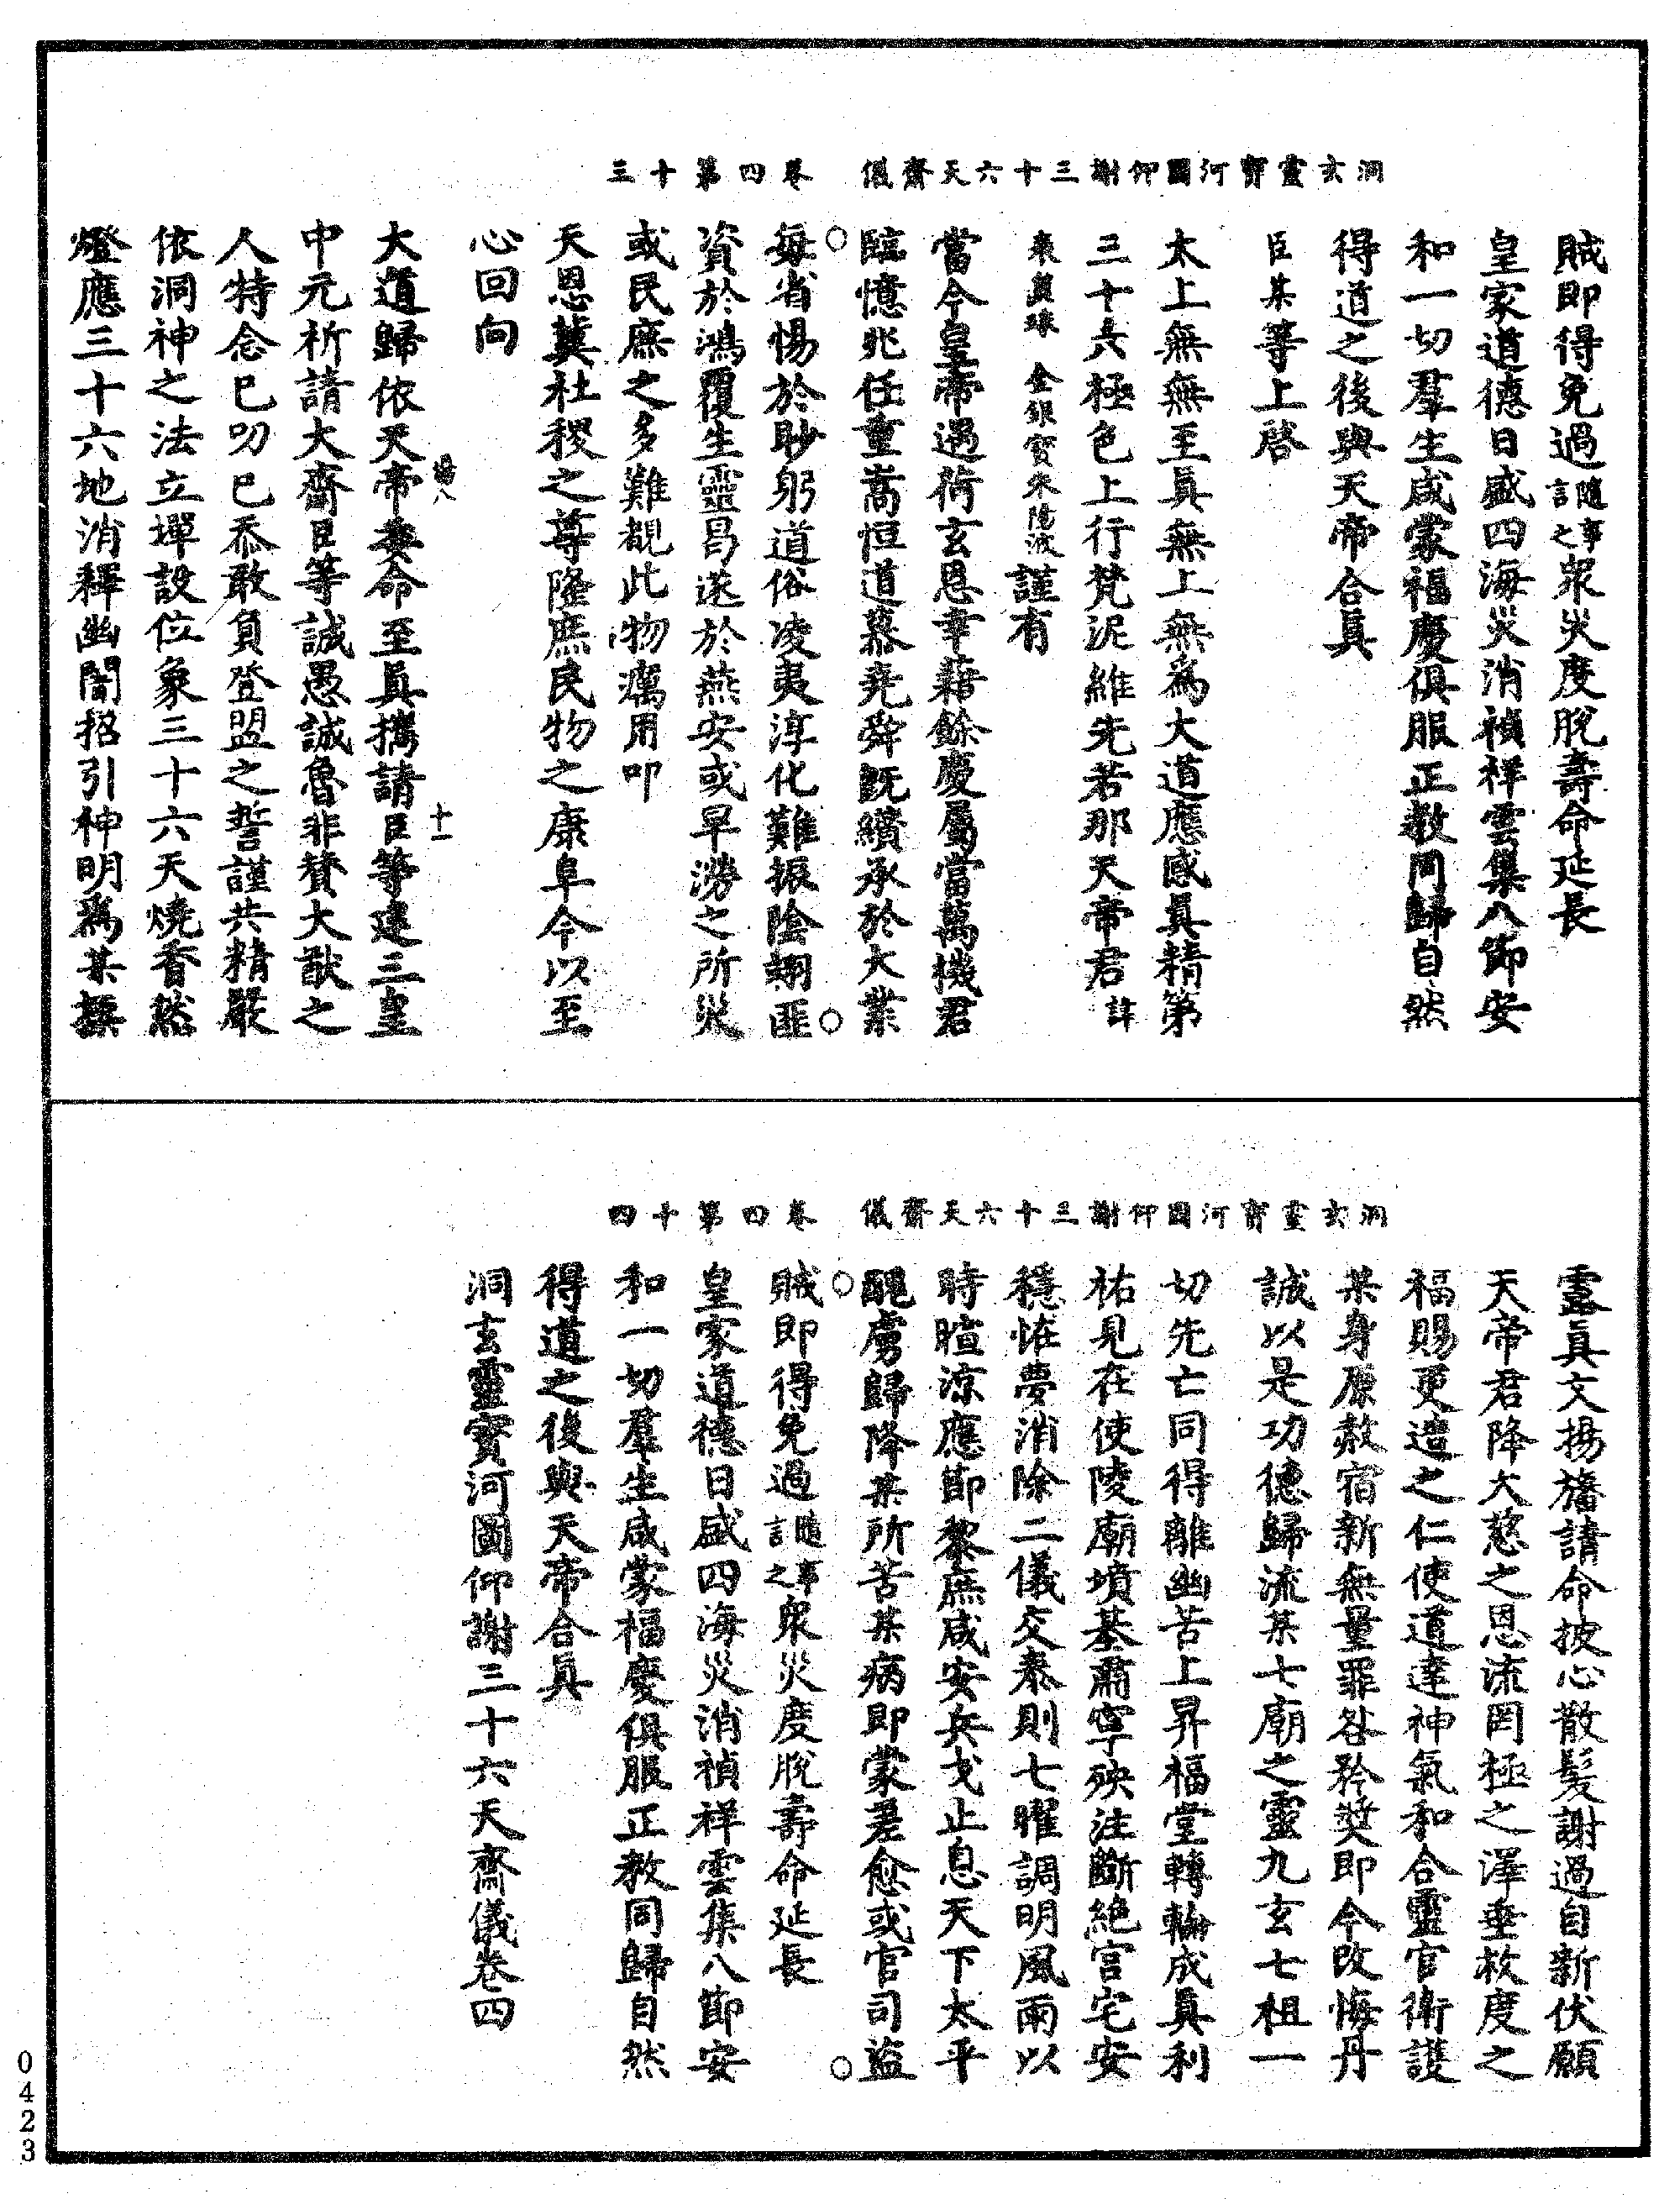 洞玄靈寶河圖仰謝三十六天齋儀　卷四第十三
賊即得免過隨事言之眾災度脫壽命延長
皇家道德日盛四海災消禎祥雲集八節安
和一切羣生咸蒙福慶俱服正教同歸自然
得道之後與天帝合真
臣某等上啓
太上無無至真無上無為大道應感真精第
三十六極色上行梵泥維先若那天帝君諱
金銀寶朱陽波謹有
當今皇帝過荷玄恩幸藉餘慶屬當萬機君
臨億兆任重嵩恒道慕堯舜既纘承於大業
每省惕於眇躬道俗凌夷淳化難振陰翊匪
資於鴻覆生靈昌遂於燕安或旱澇之所災
或民庶之多難覩此物癘用叩
天恩冀社稷之尊隆庶民物之康阜今以至
心回向
大道歸依天帝委命至真攜請臣等建三皇
中元祈請大齋臣等誠愚誠魯非贊大猷之
人特念已叨已忝敢負登盟之誓謹共精嚴
依洞神之法立墠設位象三十六天燒香然
燈應三十六地消釋幽闇招引神明為某撰
洞玄靈寶河圖仰謝三十六天齋儀　卷四第十四
靈真文揚旛請命披心散髮謝過自新伏願
天帝君降大慈之恩流罔極之澤垂救度之
福賜更造之仁使道達神氣和合靈官衛護
某身原赦宿新無量罪咎矜奬即今改悔丹
誠以是功德歸流某七廟之靈九玄七祖一
切先亡同得離幽苦上昇福堂轉輪成真利
祐見在使陵廟墳基肅寧殃注斷絕宮宅安
穩恠夢消除二儀交泰則七曜調明風雨以
時暄涼應節黎庶咸安兵戈止息天下太平
醜虜歸降某所苦某病即蒙差愈或官司盜
賊即得免過隨事言之眾災度脫壽命延長
皇家道德日盛四海災消禎祥雲集八節安
和一切羣生咸蒙福慶俱服正教同歸自然
得道之後與天帝合真
洞玄靈寶河圖仰謝三十六天齋儀卷四
0423